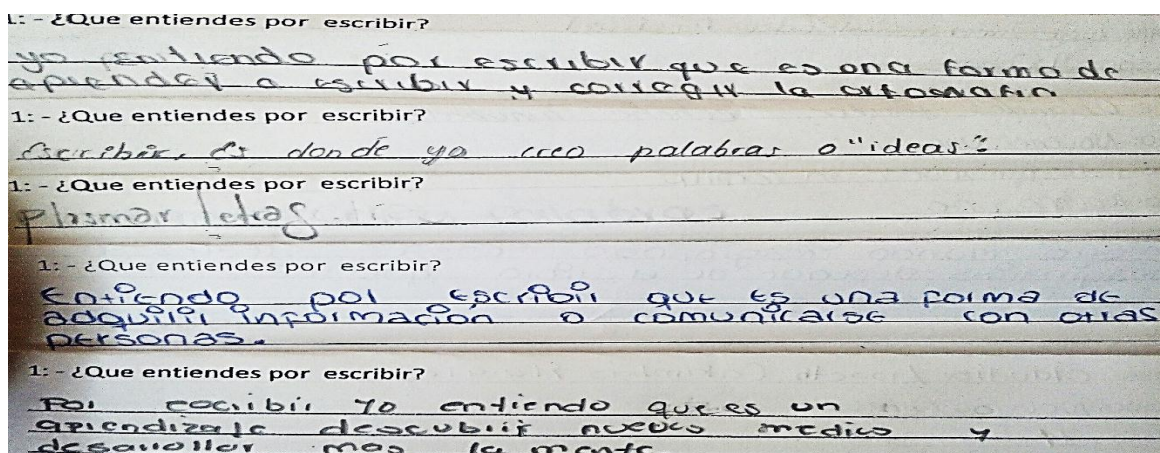 1: - ¿Que entiendes por escribir?
yo entiendo por escribir que es una forma de
aprender a escribir y corregir la ortografia
1: - ¿Que entiendes por escribir?
Escribir, es donde yo creo palabras o "ideas".
1: - ¿Que entiendes por escribir?
plasmar letras.
1: - ¿Que entiendes por escribir?
Entiendo por escribir que es una forma de
adquirir información o comunicarse con otras
personas.
1: - ¿Que entiendes por escribir?
Por escribir yo entiendo que es un
aprendizaje descubrir nuevos medios y
desarrollar mas la mente